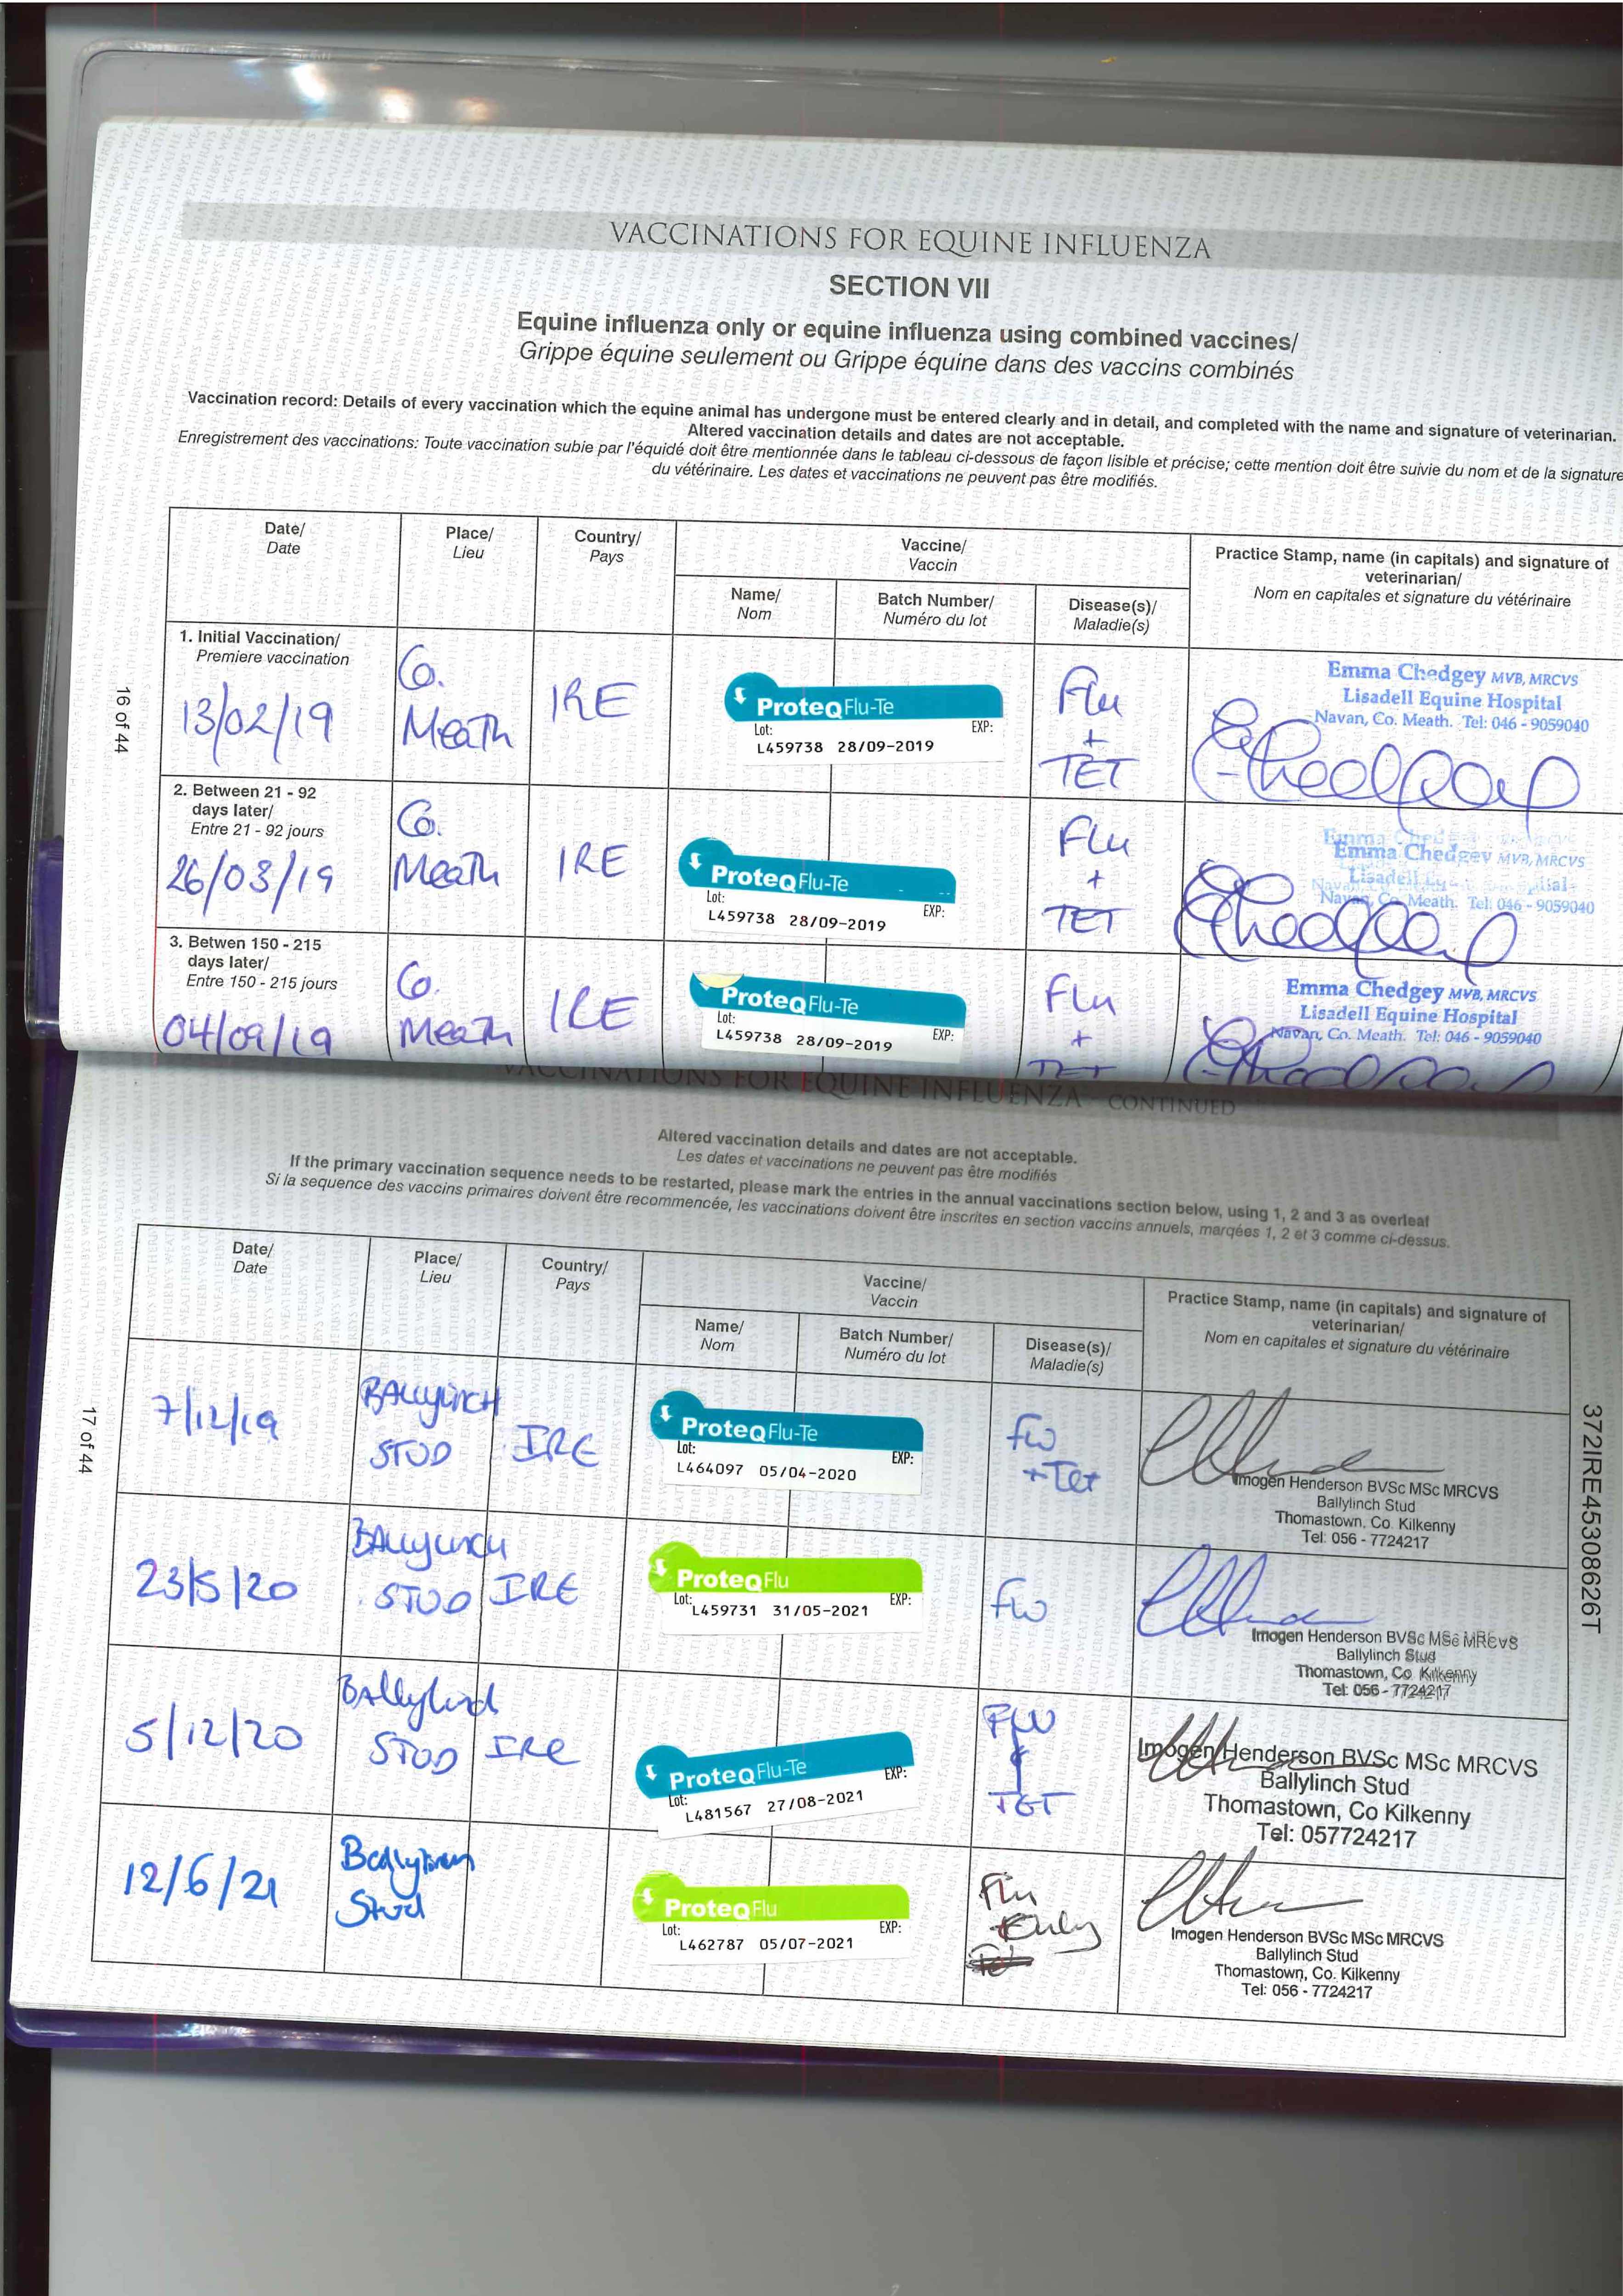 VACCINATIONS FOR EQUINE INFLUENZA
SECTION VII
Equine influenza only or equine influenza using combined vaccines/
Grippe équine seulement ou Grippe équine dans des vaccins combinés
Vaccination record: Details of every vaccination which the equine animal has undergone must be entered clearly and in detail, and completed with the name and signature of veterinarian.
Altered vaccination details and dates are not acceptable.
Enregistrement des vaccinations: Toute vaccination subie par l'équidé doit être mentionnée dans le tableau ci-dessous de façon lisible et précise; cette mention doit être suivie du nom et de la signature
du vétérinaire. Les dates et vaccinations ne peuvent pas être modifiés.
Date/
Date
Place/
Lieu
Country/
Pays
Vaccine/
Vaccin
Name/
Nom
Batch Number/
Numéro du lot
Disease(s)/
Maladie(s)
Practice Stamp, name (in capitals) and signature of
veterinarian/
Nom en capitales et signature du vétérinaire
1. Initial Vaccination/
Premiere vaccination
13/02/19
Co.
Meath
IRE
ProteqFlu-Te
Lot: EXP:
L459738 28/09-2019
Flu
+
TET
Emma Chedgey MVB, MRCVS
Lisadell Equine Hospital
Navan, Co. Meath. Tel: 046 - 9059040
2. Between 21 - 92
days later/
Entre 21 - 92 jours
26/03/19
Co.
Meath
IRE
ProteqFlu-Te
Lot: EXP:
L459738 28/09-2019
Flu
+
TET
Emma Chedgey MVB, MRCVS
Lisadell
Navan, Co. Meath. Tel: 046 - 9059040
3. Betwen 150 - 215
days later/
Entre 150 - 215 jours
04/09/19
Co.
Meath
IRE
ProteqFlu-Te
Lot: EXP:
L459738 28/09-2019
Flu
+
TET
Emma Chedgey MVB, MRCVS
Lisadell Equine Hospital
Navan, Co. Meath. Tel: 046 - 9059040
16 of 44
VACCINATIONS FOR EQUINE INFLUENZA CONTINUED
Altered vaccination details and dates are not acceptable.
Les dates et vaccinations ne peuvent pas être modifiés
If the primary vaccination sequence needs to be restarted, please mark the entries in the annual vaccinations section below, using 1, 2 and 3 as overleaf
Si la sequence des vaccins primaires doivent être recommencée, les vaccinations doivent être inscrites en section vaccins annuels, marqées 1, 2 et 3 comme ci-dessus.
Date/
Date
Place/
Lieu
Country/
Pays
Vaccine/
Vaccin
Name/
Nom
Batch Number/
Numéro du lot
Disease(s)/
Maladie(s)
Practice Stamp, name (in capitals) and signature of
veterinarian/
Nom en capitales et signature du vétérinaire
7/12/19
BALLYLINCH
STUD
IRE
ProteqFlu-Te
Lot: EXP:
L464097 05/04-2020
Flu
+Tet
Imogen Henderson BVSc MSc MRCVS
Ballylinch Stud
Thomastown, Co. Kilkenny
Tel: 056 - 7724217
23/5/20
BALLYLINCH
STUD
IRE
ProteqFlu
Lot: EXP:
L459731 31/05-2021
Flu
Imogen Henderson BVSc MSc MRCVS
Ballylinch Stud
Thomastown, Co. Kilkenny
Tel: 056 - 7724217
5/12/20
Ballylinch
STUD
IRE
ProteqFlu-Te
Lot: EXP:
L481567 27/08-2021
FLU
TET
Imogen Henderson BVSc MSc MRCVS
Ballylinch Stud
Thomastown, Co Kilkenny
Tel: 057724217
12/6/21
Ballylinch
Stud
ProteqFlu
Lot: EXP:
L462787 05/07-2021
Flu
Only
Imogen Henderson BVSc MSc MRCVS
Ballylinch Stud
Thomastown, Co. Kilkenny
Tel: 056 - 7724217
17 of 44
372IRE45308626T